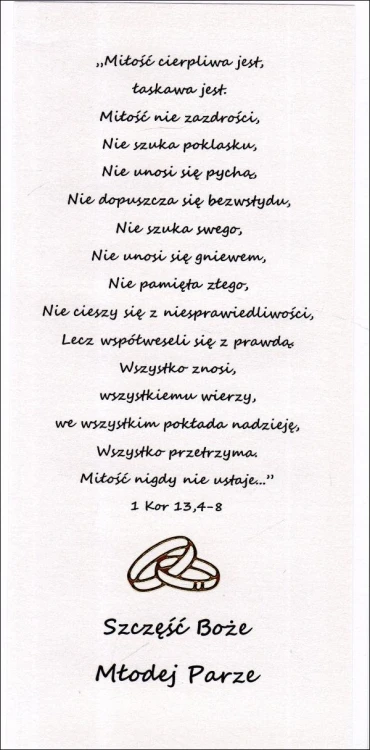 „Miłość cierpliwa jest,
łaskawa jest.
Miłość nie zazdrości,
Nie szuka poklasku,
Nie unosi się pychą,
Nie dopuszcza się bezwstydu,
Nie szuka swego,
Nie unosi się gniewem,
Nie pamięta złego,
Nie cieszy się z niesprawiedliwości,
Lecz współweseli się z prawdą.
Wszystko znosi,
wszystkiemu wierzy,
we wszystkim pokłada nadzieję,
Wszystko przetrzyma.
Miłość nigdy nie ustaje...”
1 Kor 13,4-8
Szczęść Boże
Młodej Parze